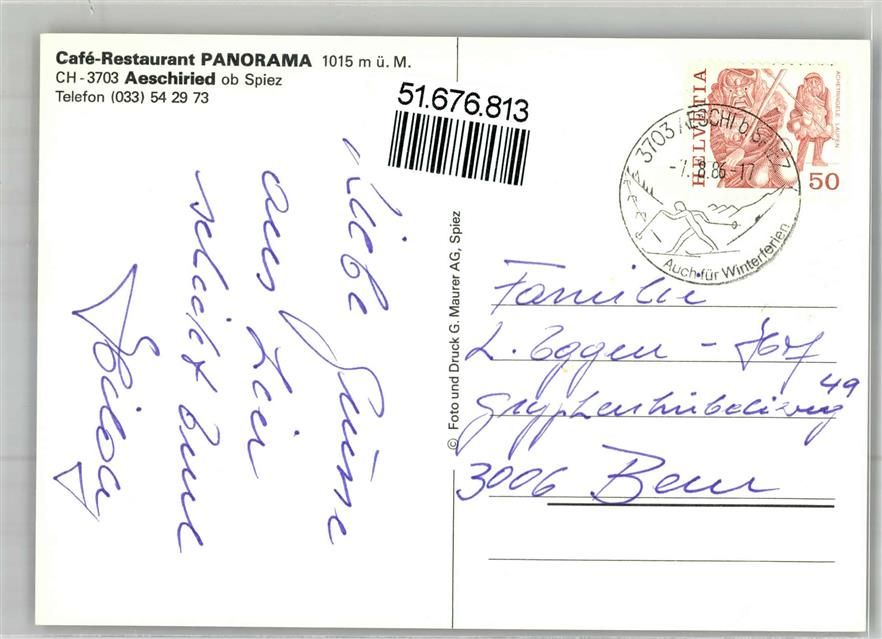 Café-Restaurant PANORAMA 1015 m ü. M.
CH-3703 Aeschiried ob Spiez
Telefon (033) 54 29 73
51.676.813
Liebe Grüsse
aus
schickt Eure
© Foto und Druck G. Maurer AG, Spiez
HELVETIA
ACHETRINGELE LAUPEN
50
3703 AESCHI b. SPIEZ
-7.-8.86-17
Auch für Winterferien
Familie
L. Eggen - Hof
49
3006 Bern